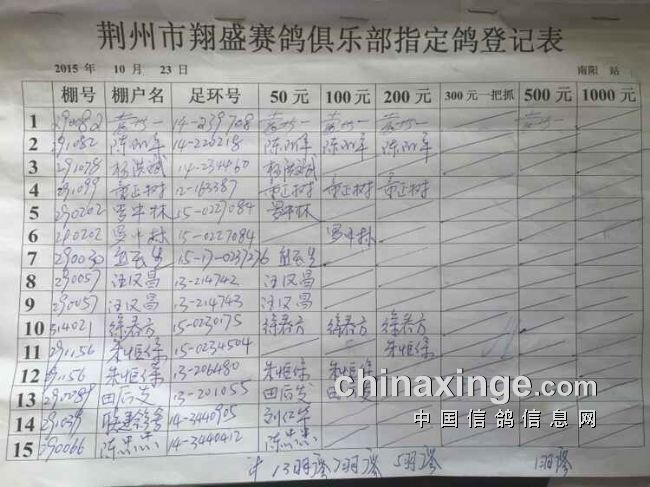 荆州市翔盛赛鸽俱乐部指定鸽登记表
2015 年 10 月 23 日 南阳 站
棚号 棚户名 足环号 50元 100元 200元 300元一把抓 500元 1000元
1 290082 14-239708
2 291082 陈 14-226218 陈 陈 陈
3 291078 杨洪斌 14-234460 杨洪斌
4 291099 董正树 12-163387 董正树 董正树 董正树
5 290202 罗中林 15-0227084 罗中林
6 290202 罗中林 15-0227084 罗中林
7 290030 15-17-0237276
8 290057 汪汉昌 13-214742 汪汉昌
9 290057 汪汉昌 13-214743 汪汉昌
10 314021 徐春方 15-0230175 徐春方 徐春方 徐春方
11 291156 朱恒保 15-0234504 朱恒保
12 91156 朱恒保 13-206480 朱恒保 朱恒保
13 290289 田后发 13-201055 田后发 田后发
14 291039 联建鸽舍 14-3440905
15 290066 陈杰杰 14-3440412 陈杰杰
计 13羽 7羽 5羽 1羽
chinaxinge.com
中国信鸽信息网